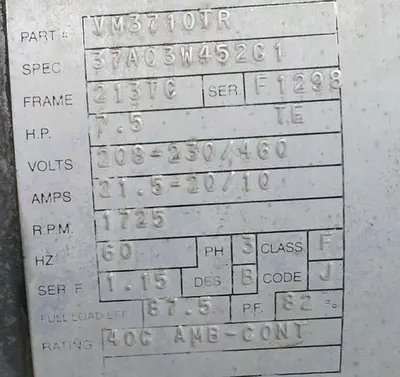 PART # VM3710TR
SPEC. 37A03W452G1
FRAME 213TC SER. F1298
H.P. 7.5 TE
VOLTS 208-230/460
AMPS 21.5-20/10
R.P.M. 1725
HZ 60 PH 3 CLASS F
SER F. 1.15 DES B CODE J
FULL LOAD EFF. 87.5 P.F. 82 %
RATING 40C AMB-CONT